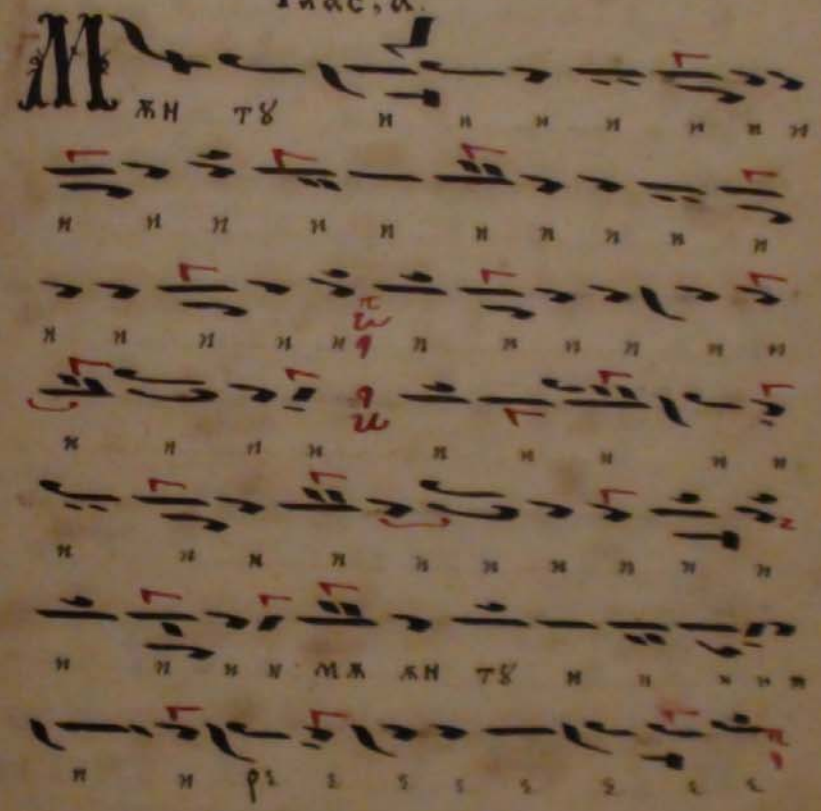 Глас, а.
М ѫн тꙋ и и и и и и и
и и и и и и и и и и
и и и и и и и и и и и
и и и и и и и и и
и и и и и и и и и и
и и и и мѫ ѫн тꙋ и и и и и
и и рє є є є є є є є